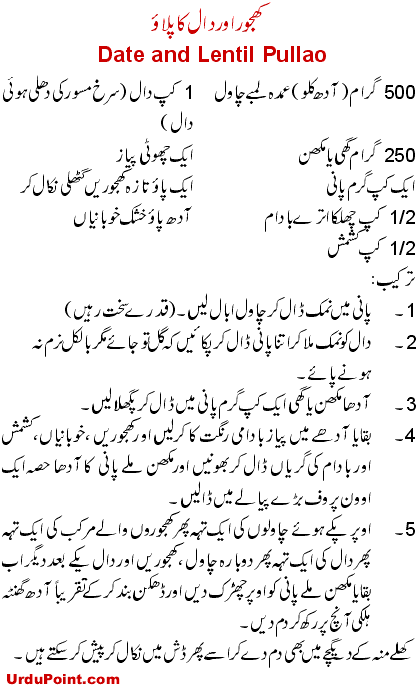 کھجور اور دال کا پلاؤ
Date and Lentil Pullao
500 گرام (آدھ کلو) عمدہ لمبے چاول
1 کپ دال (سرخ مسور کی دھلی ہوئی
دال)
250 گرام گھی یا مکھن
ایک چھوٹی پیاز
ایک کپ گرم پانی
ایک پاؤ تازہ کھجوریں گٹھلی نکال کر
1/2 کپ چھلکا اترے بادام
آدھ پاؤ خشک خوبانیاں
1/2 کپ کشمش
ترکیب:
1۔ پانی میں نمک ڈال کر چاول ابال لیں۔ (قدرے سخت رہیں)
2۔ دال کو نمک ملا کر اتنا پانی ڈال کر پکائیں کہ گل تو جائے مگر بالکل نرم نہ
ہونے پائے۔
3۔ آدھا مکھن یا گھی ایک کپ گرم پانی میں ڈال کر پگھلا لیں۔
4۔ بقایا آدھے میں پیاز بادامی رنگت کا کر لیں اور کھجوریں، خوبانیاں، کشمش
اور بادام کی گریاں ڈال کر بھونیں اور مکھن ملے پانی کا آدھا حصہ ایک
اوون پروف بڑے پیالے میں ڈالیں۔
5۔ اوپر پکے ہوئے چاولوں کی ایک تہہ پھر کھجوروں والے مرکب کی ایک تہہ
پھر دال کی ایک تہہ پھر دوبارہ چاول، کھجوریں اور دال یکے بعد دیگر اب
بقایا مکھن ملے پانی کو اوپر چھڑک دیں اور ڈھکن بند کر کے تقریباً آدھ گھنٹہ
ہلکی آنچ پر رکھ کر دم دیں۔
کھلے منہ کے دیگچے میں بھی دم دے کر اسے پھر ڈش میں نکال کر پیش کر سکتے ہیں۔
UrduPoint.com